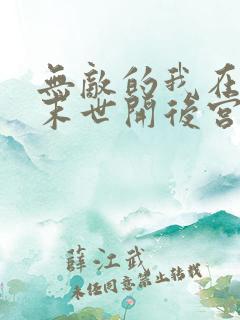 無敵的我在
末世開後宮
薛江武
未經同意禁止轉載